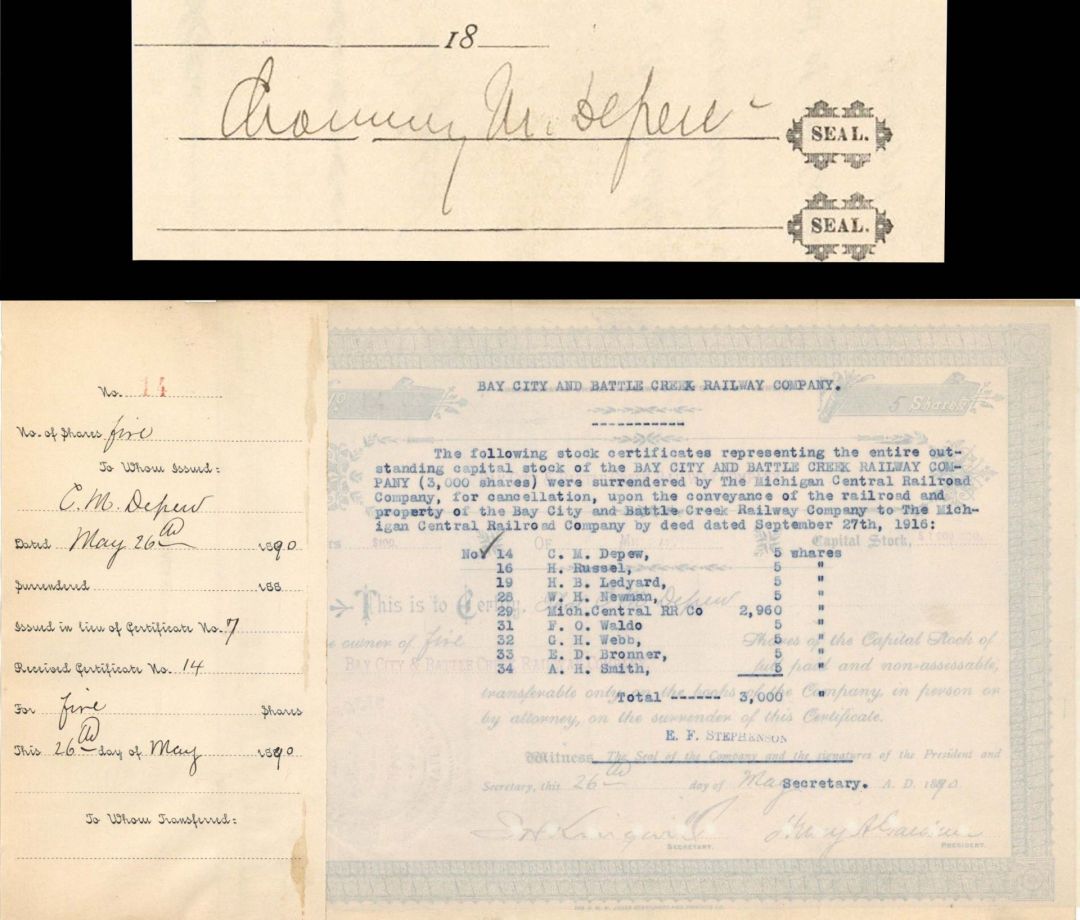 18
Chauncey M. Depew
SEAL.
SEAL.
No. 14
No. of Shares five
To Whom Issued:
C. M. Depew
Dated May 26th 1890
Surrendered 188
Issued in lieu of Certificate No. 7
Received Certificate No. 14
For five Shares
This 26th day of May 1890
To Whom Transferred:
5 Shares
BAY CITY AND BATTLE CREEK RAILWAY COMPANY.
-----------
The following stock certificates representing the entire out-
standing capital stock of the BAY CITY AND BATTLE CREEK RAILWAY COM-
PANY (3,000 shares) were surrendered by The Michigan Central Railroad
Company, for cancellation, upon the conveyance of the railroad and
property of the Bay City and Battle Creek Railway Company to The Mich-
igan Central Railroad Company by deed dated September 27th, 1916:
$100. OF Capital Stock,
No. 14 C. M. Depew, 5 shares
16 H. Russel, 5 "
19 H. B. Ledyard, 5 "
28 W. H. Newman, 5 "
This is to Certify, Depew
29 Mich.Central RR Co 2,960 "
31 F. O. Waldo 5 "
32 C. H. Webb, 5 "
owner of five Shares of the Capital Stock of
33 E. D. Bronner, 5 "
BAY CITY & BATTLE CREEK RAILWAY full paid and non-assessable,
34 A. H. Smith, 5 "
transferable only on the books of the Company, in person or
Total ------ 3,000 "
by attorney, on the surrender of this Certificate.
E. F. STEPHENSON
Witness The Seal of the Company and the signatures of the President and
Secretary, this 26th day of May A. D. 1890
Secretary.
SECRETARY.
PRESIDENT.